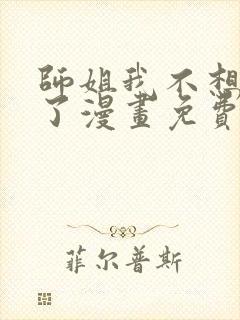 師姐我不想
了漫畫免費
菲尔普斯